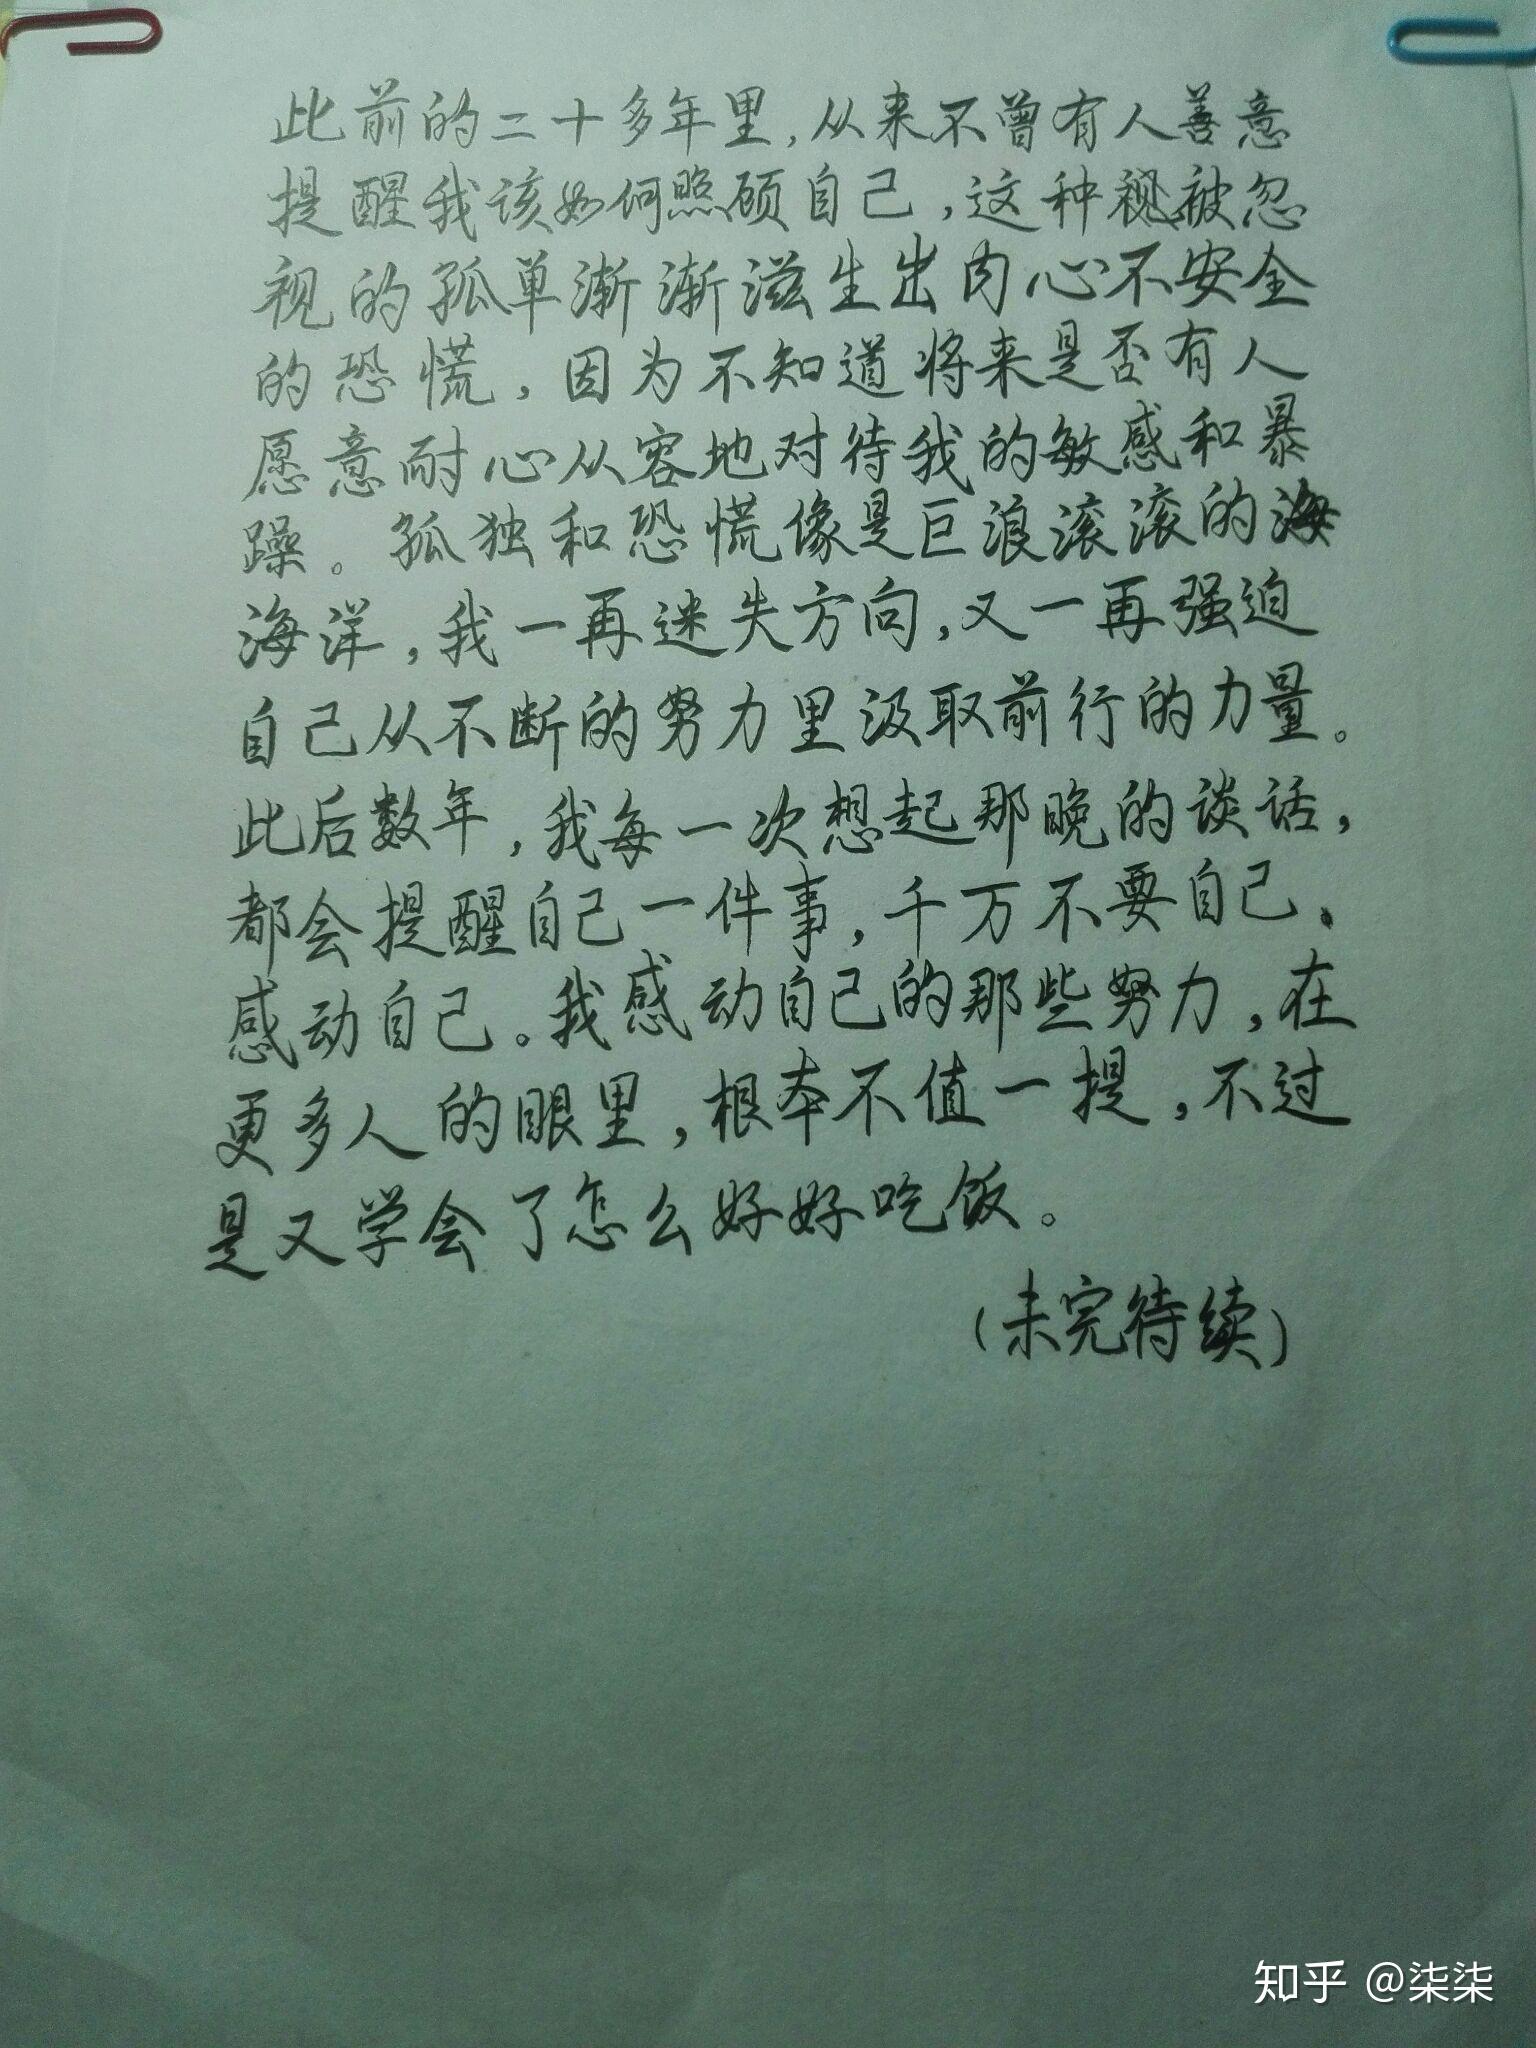 此前的二十多年里,从来不曾有人善意
提醒我该如何照顾自己,这种视被忽
视的孤单渐渐滋生出内心不安全
的恐慌,因为不知道将来是否有人
愿意耐心从容地对待我的敏感和暴
躁。孤独和恐慌像是巨浪滚滚的海
海洋,我一再迷失方向,又一再强迫
自己从不断的努力里汲取前行的力量。
此后数年,我每一次想起那晚的谈话,
都会提醒自己一件事,千万不要自己、
感动自己。我感动自己的那些努力,在
更多人的眼里,根本不值一提,不过
是又学会了怎么好好吃饭。
(未完待续)
知乎 @柒柒